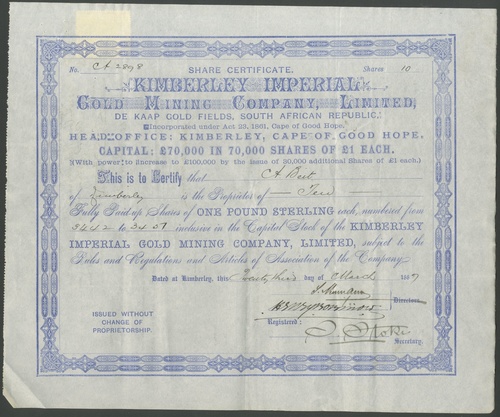 SHARE CERTIFICATE.
No. CA 2898 Shares 10
KIMBERLEY IMPERIAL
GOLD MINING COMPANY, LIMITED,
DE KAAP GOLD FIELDS, SOUTH AFRICAN REPUBLIC.
Incorporated under Act 23, 1861, Cape of Good Hope.
HEAD OFFICE: KIMBERLEY, CAPE OF GOOD HOPE.
CAPITAL: £70,000 IN 70,000 SHARES OF £1 EACH.
(With power to increase to £100,000 by the issue of 30,000 additional Shares of £1 each.)
This is to Certify that
of Kimberley is the Proprietor of Ten
Fully Paid-up Shares of ONE POUND STERLING each, numbered from
to inclusive in the Capital Stock of the KIMBERLEY
IMPERIAL GOLD MINING COMPANY, LIMITED, subject to the
Rules and Regulations and Articles of Association of the Company.
Dated at Kimberley, this day of March 188
Directors.
ISSUED WITHOUT
CHANGE OF
PROPRIETORSHIP.
Registered:
Secretary.